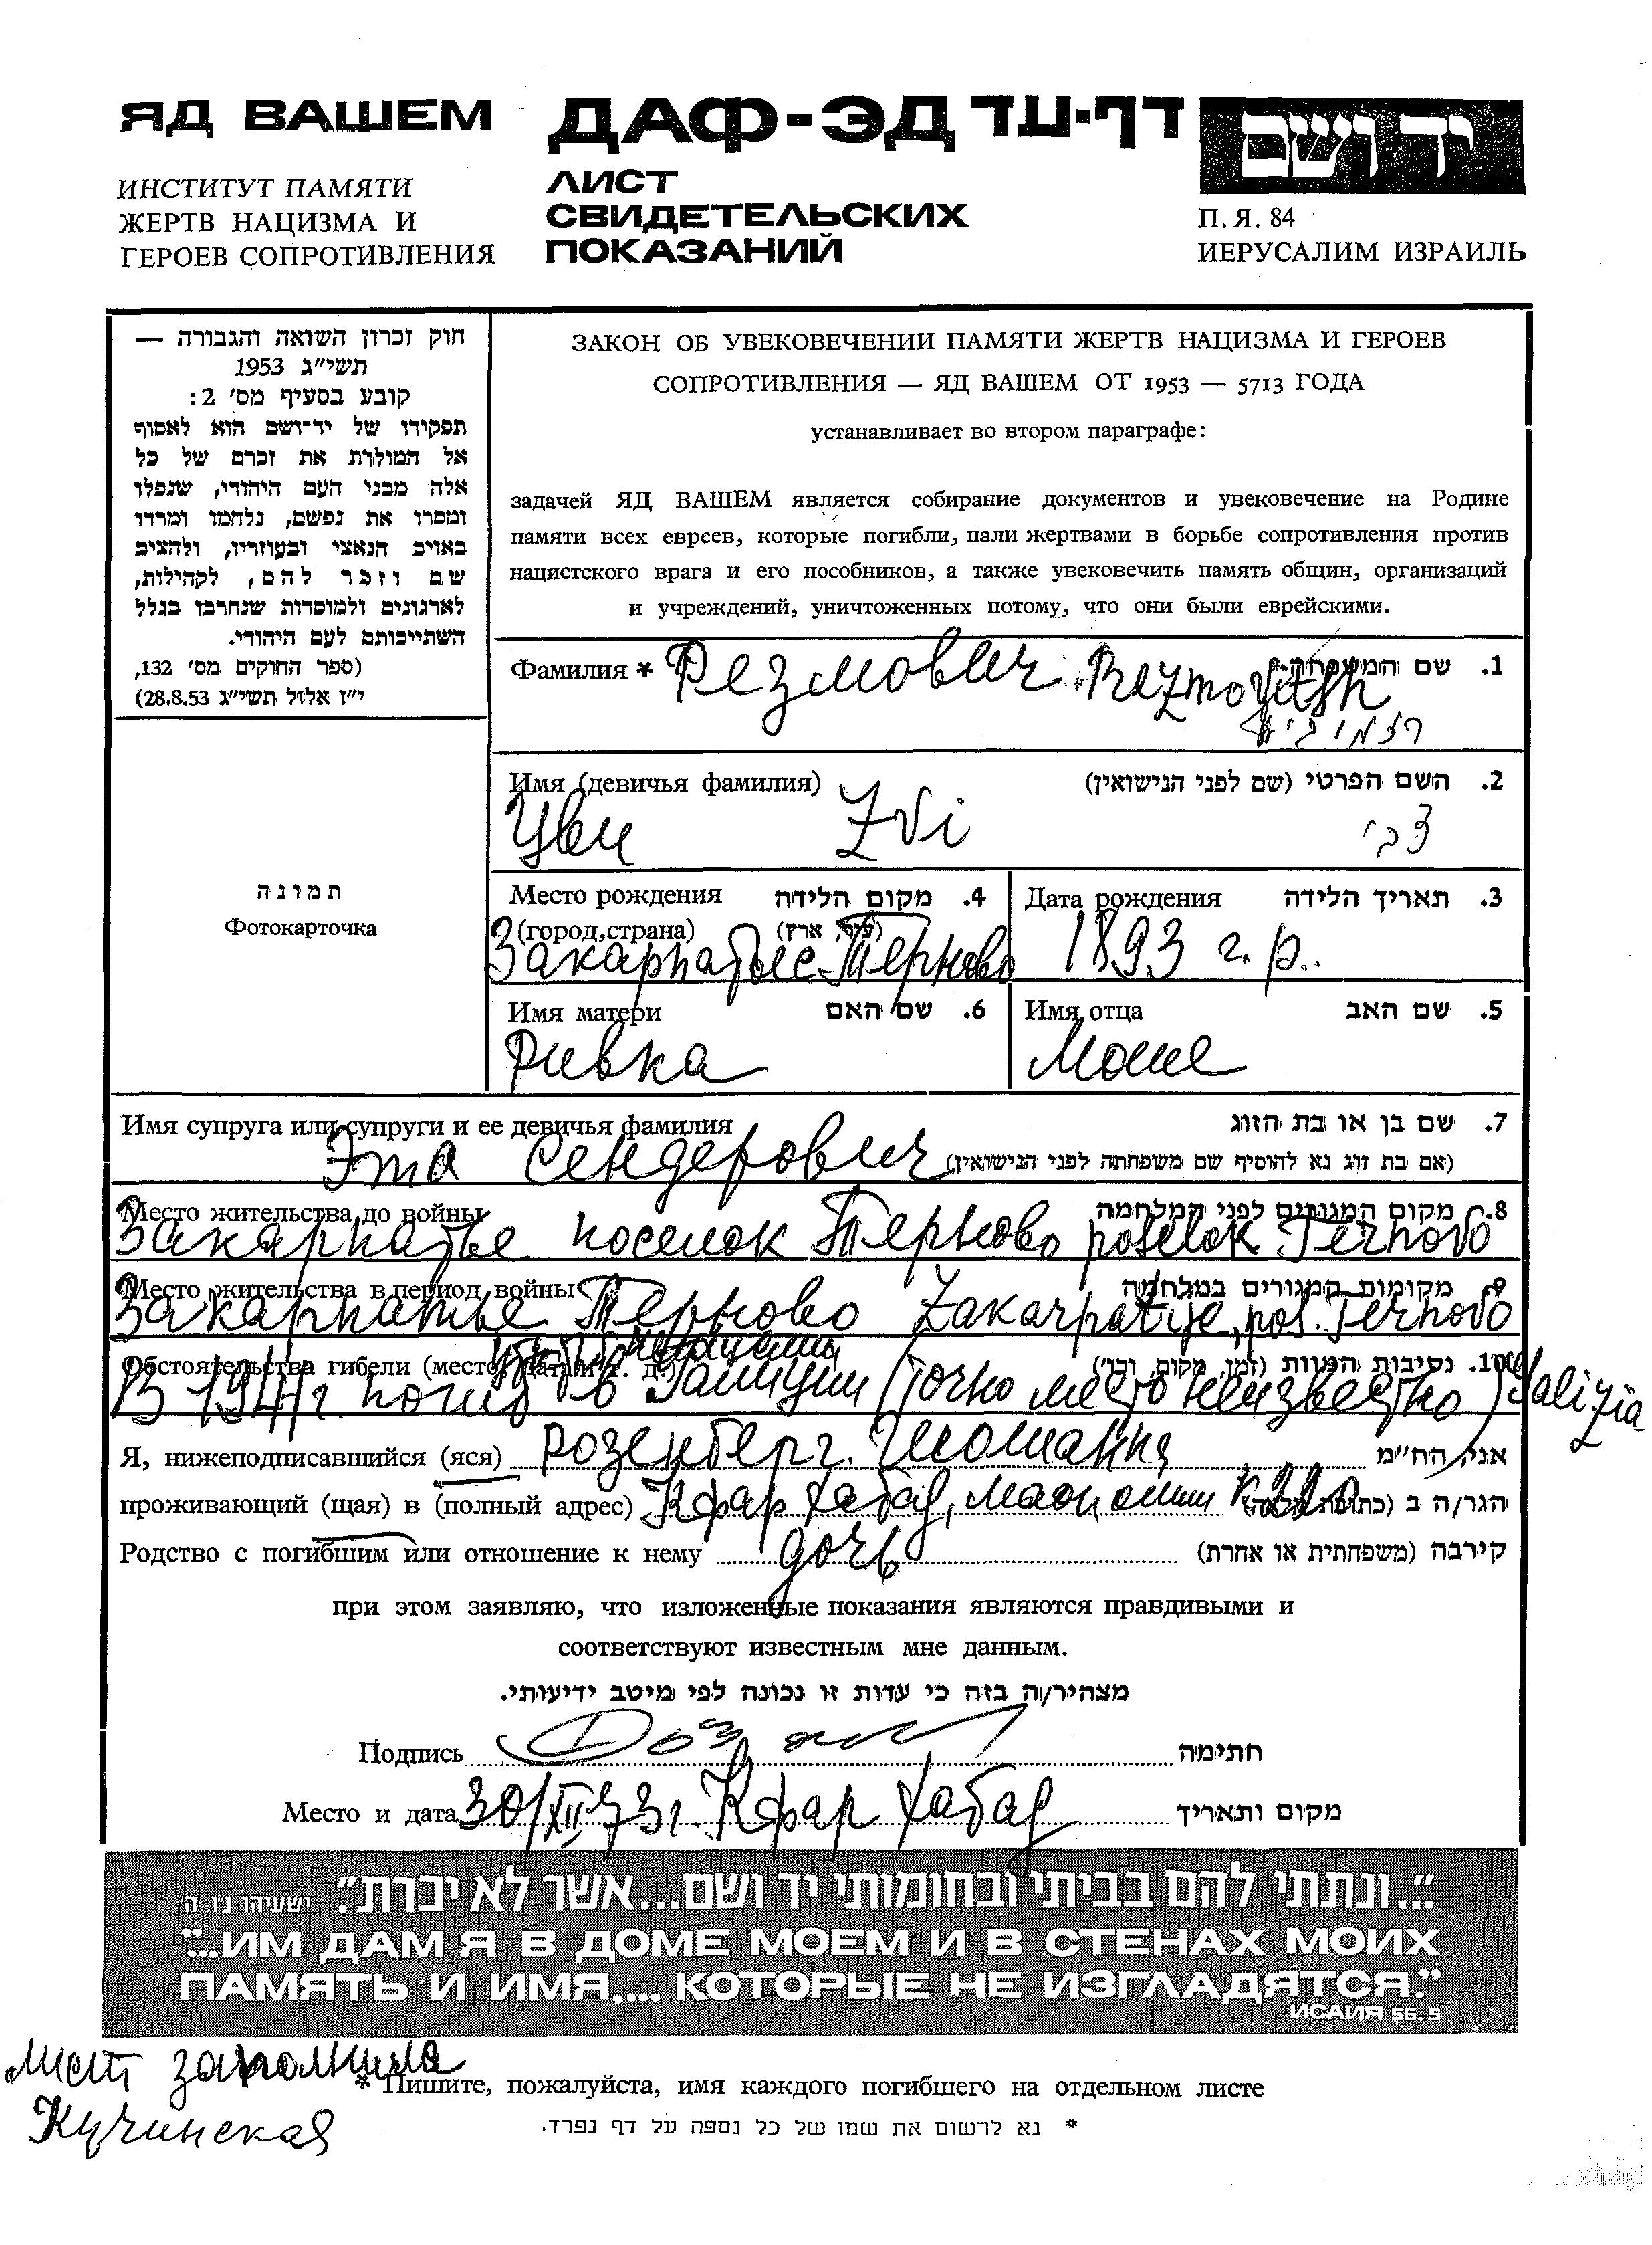 ЯД ВАШЕМ
ИНСТИТУТ ПАМЯТИ
ЖЕРТВ НАЦИЗМА И
ГЕРОЕВ СОПРОТИВЛЕНИЯ
ДАФ-ЭД דף-עד
ЛИСТ
СВИДЕТЕЛЬСКИХ
ПОКАЗАНИЙ
יד ושם
П. Я. 84
ИЕРУСАЛИМ ИЗРАИЛЬ
חוק זכרון השואה והגבורה —
תשי״ג 1953
קובע בסעיף מס׳ 2:
תפקידו של יד־ושם הוא לאסוף
אל המולדת את זכרם של כל
אלה מבני העם היהודי, שנפלו
ומסרו את נפשם, נלחמו ומרדו
באויב הנאצי ובעוזריו, ולהציב
שם וזכר להם, לקהילות,
לארגונים ולמוסדות שנחרבו בגלל
השתייכותם לעם היהודי.
(ספר החוקים מס׳ 132,
י״ז אלול תשי״ג 28.8.53)
תמונה
Фотокарточка
ЗАКОН ОБ УВЕКОВЕЧЕНИИ ПАМЯТИ ЖЕРТВ НАЦИЗМА И ГЕРОЕВ
СОПРОТИВЛЕНИЯ — ЯД ВАШЕМ ОТ 1953 — 5713 ГОДА
устанавливает во втором параграфе:
задачей ЯД ВАШЕМ является собирание документов и увековечение на Родине
памяти всех евреев, которые погибли, пали жертвами в борьбе сопротивления против
нацистского врага и его пособников, а также увековечить память общин, организаций
и учреждений, уничтоженных потому, что они были еврейскими.
Фамилия * Резмович Rezmovitsh 1. שם המשפחה*
רזמוביץ
Имя (девичья фамилия) 2. השם הפרטי (שם לפני הנישואין)
Цви Zvi צבי
Место рождения 4. מקום הלידה
(город,страна) (עיר, ארץ)
Закарпатье Терново
Дата рождения 3. תאריך הלידה
1893 г. р.
Имя матери 6. שם האם
Ривка
Имя отца 5. שם האב
Моше
Имя супруга или супруги и ее девичья фамилия 7. שם בן או בת הזוג
Эта Сендерович (אם בת זוג נא להוסיף שם משפחתה לפני הנישואין)
Место жительства до войны 8. מקום המגורים לפני המלחמה
Закарпатье поселок Терново poselok Ternovo
Место жительства в период войны 9. מקומות המגורים במלחמה
Закарпатье Терново Zakarpatije, pos. Ternovo
Обстоятельства гибели (место, дата и т. д.) 10. נסיבות המוות (זמן, מקום, וכו׳)
В 1941г. погиб в Галиции (точно место неизвестно) Galizia
Я, нижеподписавшийся (яся) Розенберг Шошанна אני, הח״מ
проживающий (щая) в (полный адрес) Кфар Хабад, הגר/ה ב (כתובת מלאה)
Родство с погибшим или отношение к нему дочь קירבה (משפחתית או אחרת)
при этом заявляю, что изложенные показания являются правдивыми и
соответствуют известным мне данным.
מצהיר/ה בזה כי עדות זו נכונה לפי מיטב ידיעותי.
Подпись חתימה
Место и дата 30/XII-73г. Кфар Хабад מקום ותאריך
״...ונתתי להם בביתי ובחומותי יד ושם...אשר לא יכרת״. ישעיהו נ״ו. ה׳
"...ИМ ДАМ Я В ДОМЕ МОЕМ И В СТЕНАХ МОИХ
ПАМЯТЬ И ИМЯ.... КОТОРЫЕ НЕ ИЗГЛАДЯТСЯ."
ИСАИЯ 56. 5
лист заполнила
Кучинская
* Пишите, пожалуйста, имя каждого погибшего на отдельном листе
* נא לרשום את שמו של כל נספה על דף נפרד.